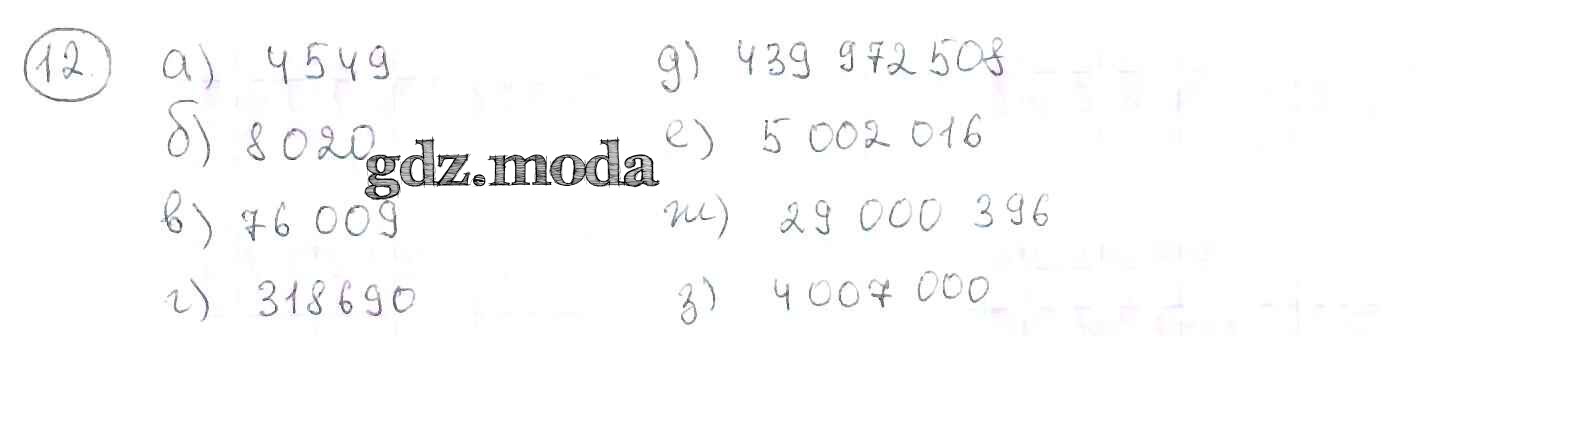 12 а) 4549 д) 439 972 508
б) 8020 е) 5 002 016
gdz.moda
в) 76 009 ж) 29 000 396
г) 318690 з) 4 007 000